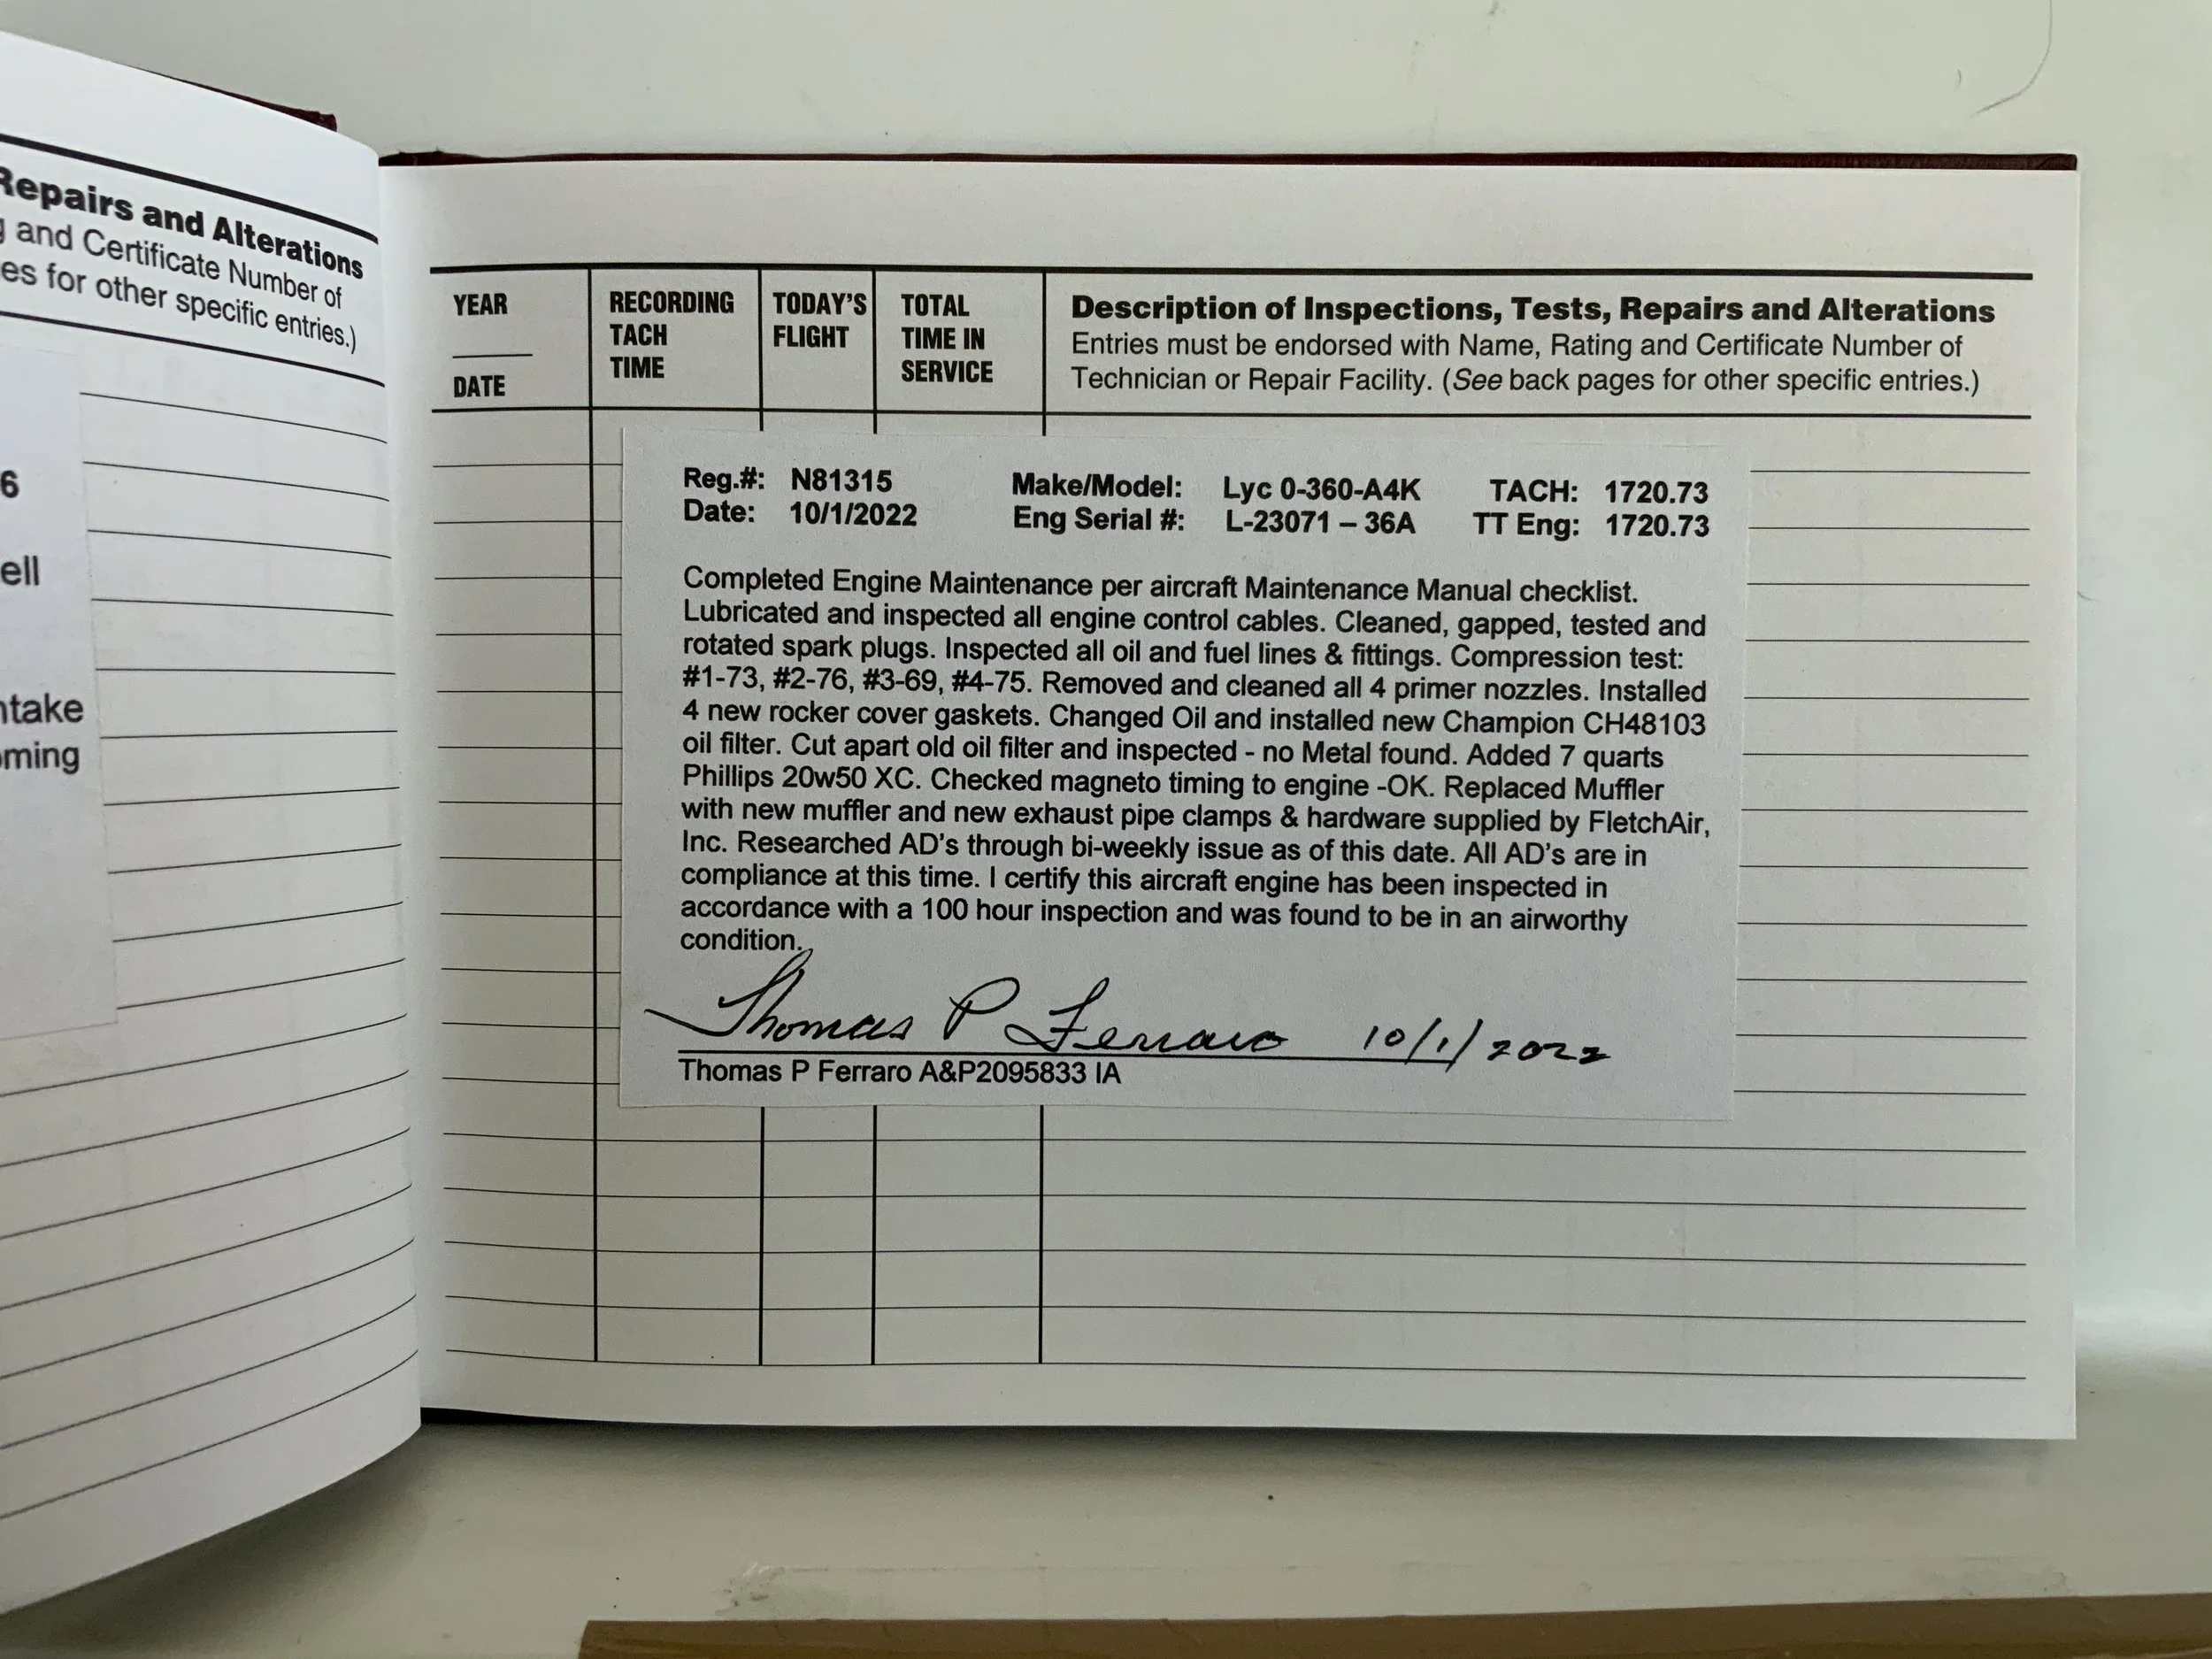 Repairs and Alterations
and Certificate Number of
es for other specific entries.)
6
ell
ntake
oming
YEAR
DATE
RECORDING
TACH
TIME
TODAY'S
FLIGHT
TOTAL
TIME IN
SERVICE
Description of Inspections, Tests, Repairs and Alterations
Entries must be endorsed with Name, Rating and Certificate Number of
Technician or Repair Facility. (See back pages for other specific entries.)
Reg.#: N81315 Make/Model: Lyc 0-360-A4K TACH: 1720.73
Date: 10/1/2022 Eng Serial #: L-23071 – 36A TT Eng: 1720.73
Completed Engine Maintenance per aircraft Maintenance Manual checklist.
Lubricated and inspected all engine control cables. Cleaned, gapped, tested and
rotated spark plugs. Inspected all oil and fuel lines & fittings. Compression test:
#1-73, #2-76, #3-69, #4-75. Removed and cleaned all 4 primer nozzles. Installed
4 new rocker cover gaskets. Changed Oil and installed new Champion CH48103
oil filter. Cut apart old oil filter and inspected - no Metal found. Added 7 quarts
Phillips 20w50 XC. Checked magneto timing to engine -OK. Replaced Muffler
with new muffler and new exhaust pipe clamps & hardware supplied by FletchAir,
Inc. Researched AD's through bi-weekly issue as of this date. All AD's are in
compliance at this time. I certify this aircraft engine has been inspected in
accordance with a 100 hour inspection and was found to be in an airworthy
condition.
Thomas P Ferraro 10/1/2022
Thomas P Ferraro A&P2095833 IA